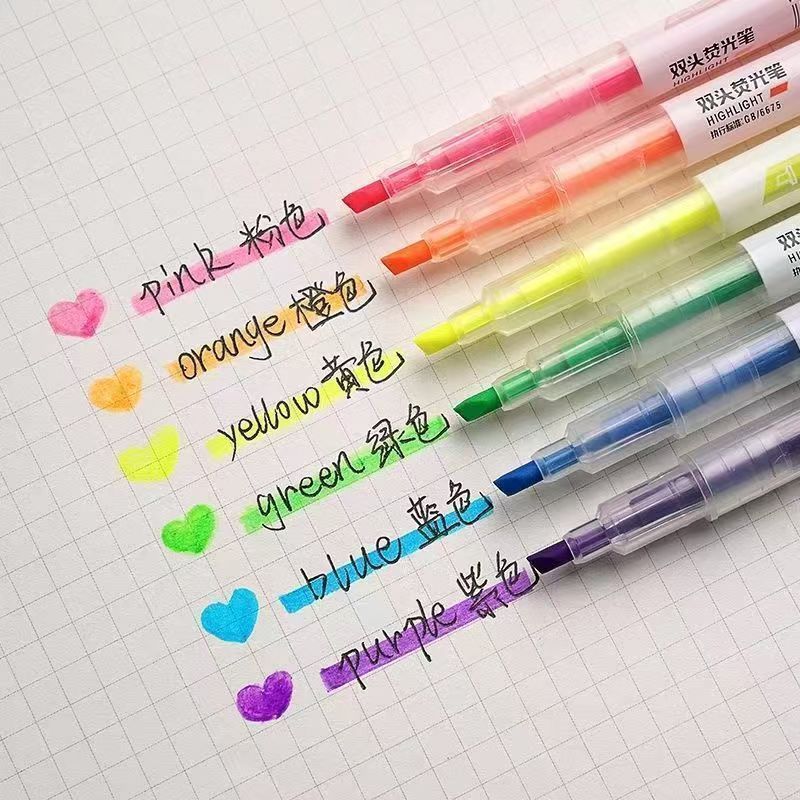 双头荧光笔
HIGHLIGHT
双头荧光笔
HIGHLIGHT
执行标准:GB/6675
pink 粉色
orange 橙色
yellow 黄色
green 绿色
blue 蓝色
purple 紫色